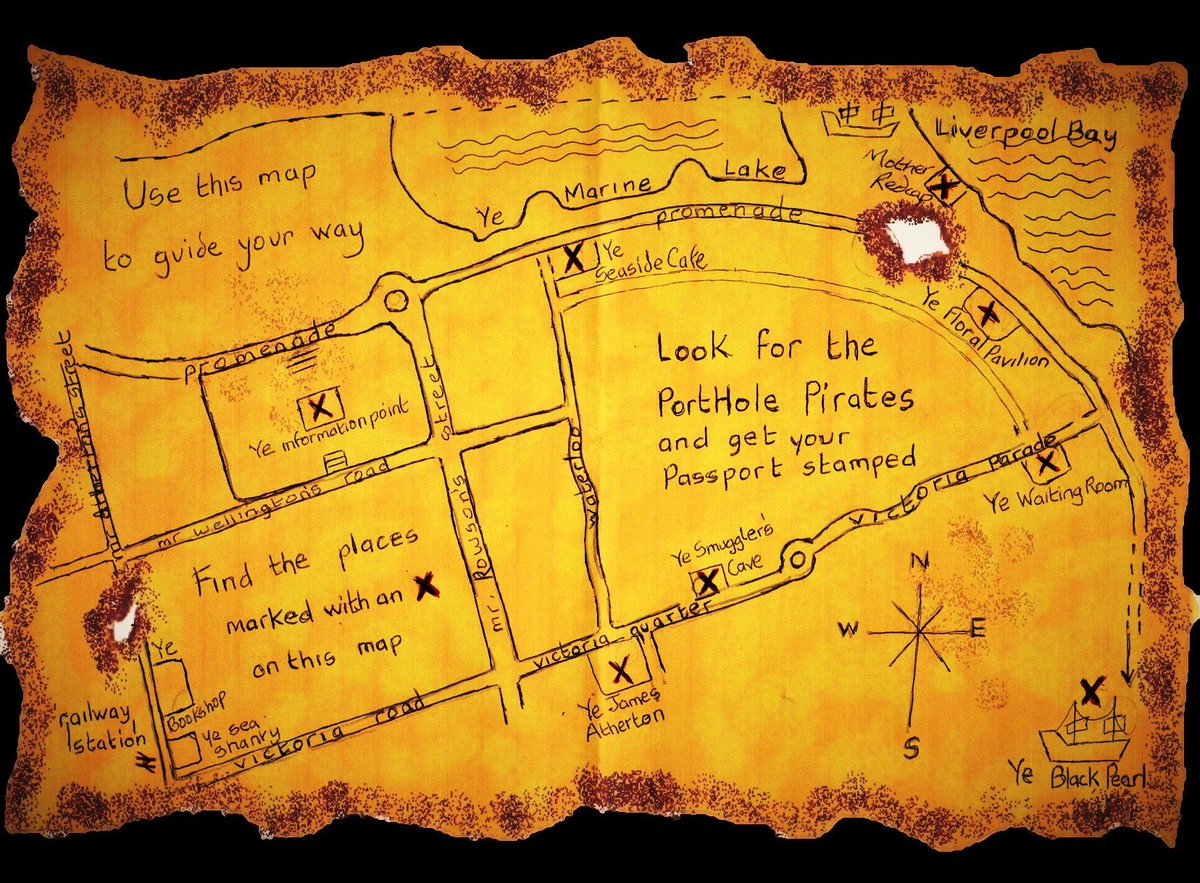 Use this map
to guide your way
Ye Marine Lake
Liverpool Bay
Mother
Redcap
promenade
Ye
Seaside Cafe
Ye Floral Pavilion
promenade
Ye information point
mr Athertons street
mr wellingtons road
mr. Rowson's street
waterloo
Look for the
PortHole Pirates
and get your
Passport stamped
victoria parade
Ye Waiting Room
Find the places
marked with an X
on this map
Ye Smugglers'
Cave
victoria quarter
Ye James
Atherton
N
W E
S
Ye
Bookshop
railway
station
Ye sea
shanty
victoria road
Ye Black Pearl